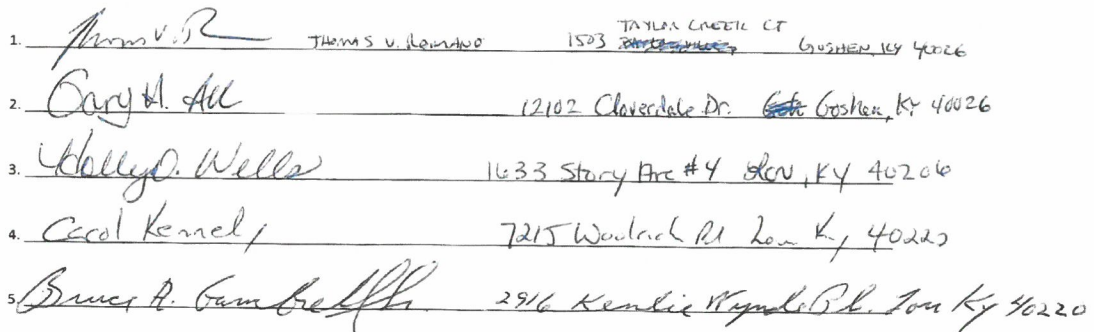 TAYLOR CREEK CT
1. Thomas V. R THOMAS V. ROMANO 1503 GOSHEN, KY 40026
2. Gary H. All 12102 Cloverdale Dr. Goshen, KY 40026
3. Holly O. Wells 1633 Story Ave #4 Lou, KY 40206
4. Carol Kennedy 7215 Woodrich Rd Lou Ky 40222
5. Bruce A. Gambrell 2916 Kenlie Wynde Pl. Lou Ky 40220